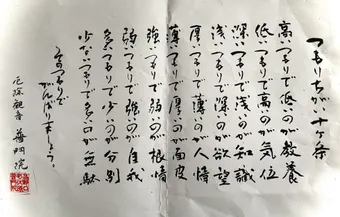 つもりちがい十ヶ条
高いつもりで低いのが教養
低いつもりで高いのが気位
深いつもりで浅いのが知識
浅いつもりで深いのが欲望
厚いつもりで薄いのが人情
薄いつもりで厚いのが面皮
強いつもりで弱いのが根性
弱いつもりで強いのが自我
多いつもりで少いのが分別
少ないつもりで多いのが無駄
そのつもりで
がんばりましょう。
厄除観音 普門院